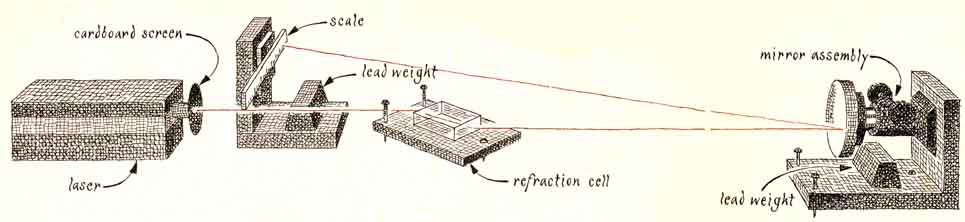 scale
cardboard screen
mirror assembly
lead weight
laser
refraction cell
lead weight